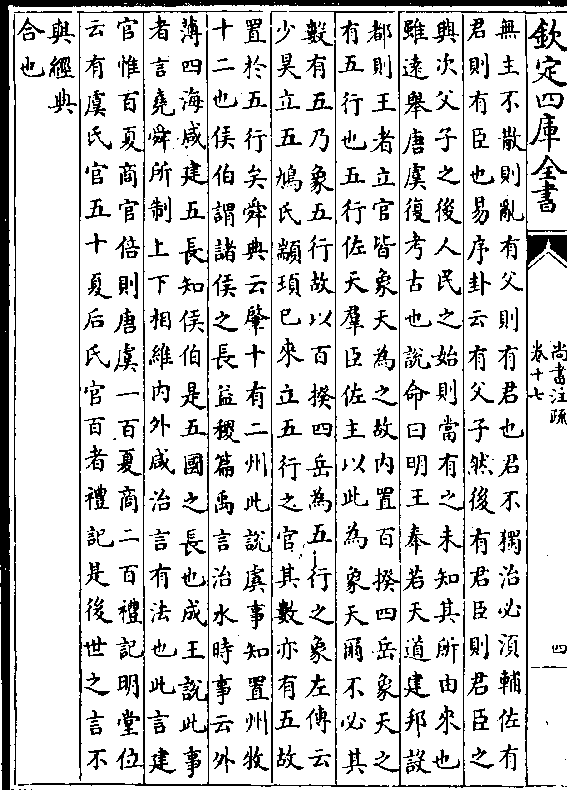 欽定四庫全書
尚書注疏
卷十七
四
無主不散則亂有父則有君也君不獨治必須輔佐有
君則有臣也易序卦云有父子然後有君臣則君臣之
興次父子之後人民之始則當有之未知其所由來也
雖遠舉唐虞復考古也說命曰明王奉若天道建邦設
都則王者立官皆象天為之故內置百揆四岳象天之
有五行也五行佐天羣臣佐主以此為象天爾不必其
數有五乃象五行故以百揆四岳為五行之象左傳云
少昊立五鳩氏顓頊已來立五行之官其數亦有五故
置於五行矣舜典云肇十有二州此說虞事知置州牧
十二也侯伯謂諸侯之長益稷篇禹言治水時事云外
薄四海咸建五長知侯伯是五國之長也成王說此事
者言堯舜所制上下相維內外咸治言有法也此言建
官惟百夏商官倍則唐虞一百夏商二百禮記明堂位
云有虞氏官五十夏后氏官百者禮記是後世之言不
與經典
合也